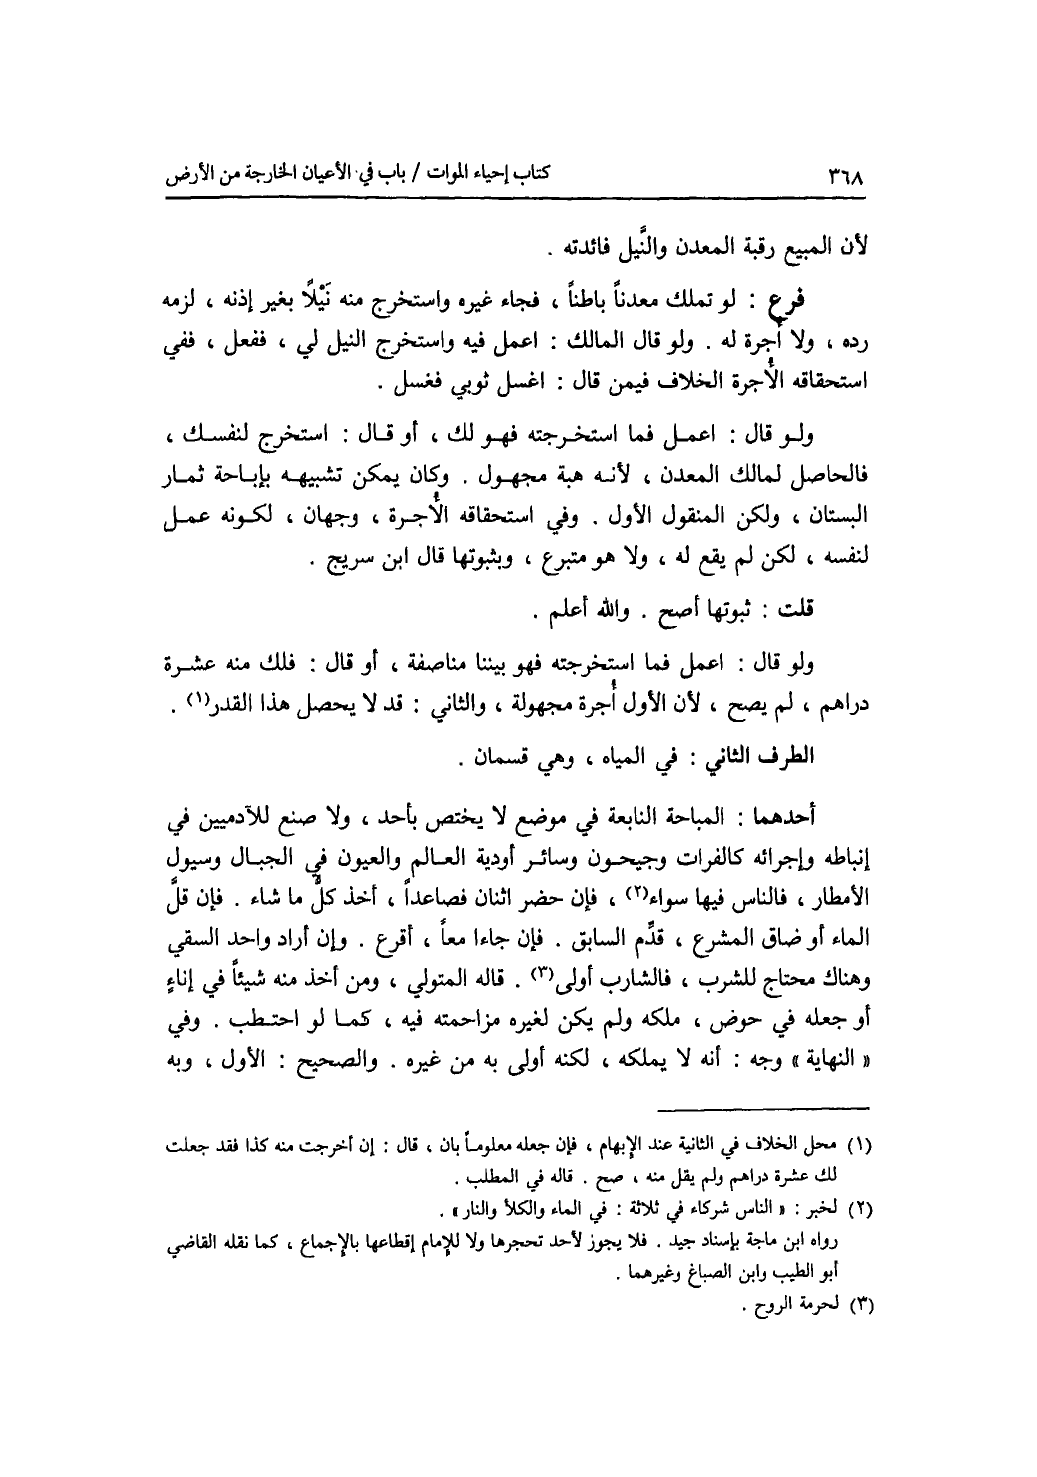 ٣٦٨ كتاب إحياء الموات / باب في الأعيان الخارجة من الأرض
لأن المبيع رقبة المعدن والنَّيل فائدته .
فرع : لو تملك معدناً باطناً ، فجاء غيره واستخرج منه نَيْلًا بغير إذنه ، لزمه
رده ، ولا أُجرة له . ولو قال المالك : اعمل فيه واستخرج النيل لي ، ففعل ، ففي
استحقاقه الأُجرة الخلاف فيمن قال : اغسل ثوبي فغسل .
ولو قال : اعمل فما استخرجته فهو لك ، أو قال : استخرج لنفسك ،
فالحاصل لمالك المعدن ، لأنه هبة مجهول . وكان يمكن تشبيهه بإباحة ثمار
البستان ، ولكن المنقول الأول . وفي استحقاقه الأُجرة ، وجهان ، لكونه عمل
لنفسه ، لكن لم يقع له ، ولا هو متبرع ، وبثبوتها قال ابن سريج .
قلت : ثبوتها أصح . والله أعلم .
ولو قال : اعمل فما استخرجته فهو بيننا مناصفة ، أو قال : فلك منه عشرة
دراهم ، لم يصح ، لأن الأول أُجرة مجهولة ، والثاني : قد لا يحصل هذا القدر(١) .
الطرف الثاني : في المياه ، وهي قسمان .
أحدهما : المباحة النابعة في موضع لا يختص بأحد ، ولا صنع للآدميين في
إنباطه وإجرائه كالفرات وجيحون وسائر أودية العالم والعيون في الجبال وسيول
الأمطار ، فالناس فيها سواء(٢) ، فإن حضر اثنان فصاعداً ، أخذ كلٌّ ما شاء . فإن قلَّ
الماء أو ضاق المشرع ، قدِّم السابق . فإن جاءا معاً ، أقرع . وإن أراد واحد السقي
وهناك محتاج للشرب ، فالشارب أولى(٣) . قاله المتولي ، ومن أخذ منه شيئاً في إناءٍ
أو جعله في حوض ، ملكه ولم يكن لغيره مزاحمته فيه ، كما لو احتطب . وفي
« النهاية » وجه : أنه لا يملكه ، لكنه أولى به من غيره . والصحيح : الأول ، وبه
(١) محل الخلاف في الثانية عند الإبهام ، فإن جعله معلوماً بان ، قال : إن أخرجت منه كذا فقد جعلت
لك عشرة دراهم ولم يقل منه ، صح . قاله في المطلب .
(٢) لخبر : « الناس شركاء في ثلاثة : في الماء والكلأ والنار» .
رواه ابن ماجة بإسناد جيد . فلا يجوز لأحد تحجرها ولا للإمام إقطاعها بالإجماع ، كما نقله القاضي
أبو الطيب وابن الصباغ وغيرهما .
(٣) لحرمة الروح .